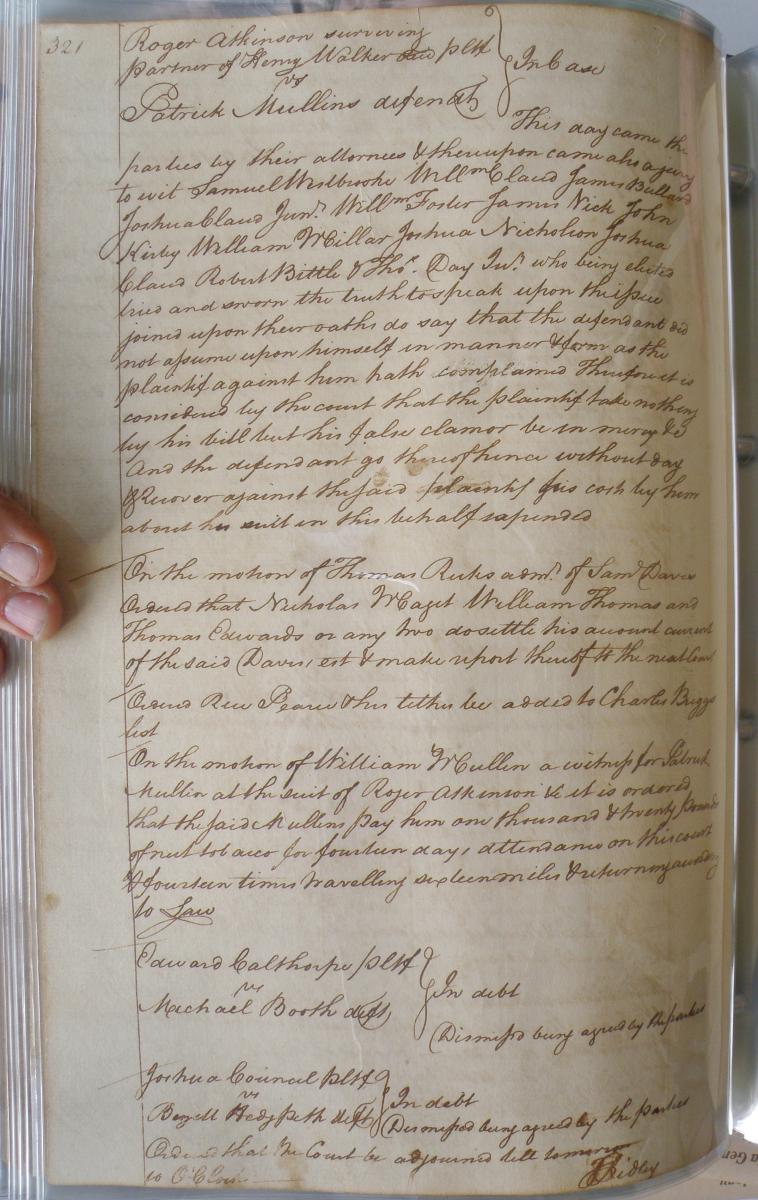 321
Roger Atkinson surviving
partner of Henry Walker pltf
vs
In Case
Patrick Mullins defendt
This day came the
parties by their attornees & thereupon came also a jury
to wit Samuel Westbrooke Willm Claud James Bullard
Joshua Claud Junr. Willm Foster James Nick John
Kirby William McCillar Joshua Nicholson Joshua
Claud Robert Bittle & Thos. Day Junr. who being elected
tried and sworn the truth to speak upon the issue
joined upon their oaths do say that the defendant did
not assume upon himself in manner & form as the
plaintif against him hath complained Therefore it is
considered by the court that the plaintif take nothing
by his bill but his false clamor be in mercy &c
And the defendant go thereof hence without day
& Recover against the said plaintif his costs by him
about his suit in this behalf expended
On the motion of Thomas Ricks admr. of Saml Davis
Ordered that Nicholas Maget William Thomas and
Thomas Edwards or any two do settle his account current
of the said Davis, est & make report thereof to the next Court
Ordered Pearce & his tithes be added to Charles Briggs
list
On the motion of William McCullen a witness for Patrick
Mullin at the suit of Roger Atkinson &c it is ordered
that the said Mullens pay him one thousand & twenty pounds
of nett tobacco for fourteen days attendance on this court
& fourteen times travelling sixteen miles & returning according
to Law
Edward Calthorpe pltf
vs
In debt
Michael Booth deft
Dismissed being agreed by the parties
Joshua Council pltf
vs
In debt
Hedgpeth deft
Dismissed being agreed by the parties
Ordered that the Court be adjourned till tomorrow
10 O'Clock
Ridley